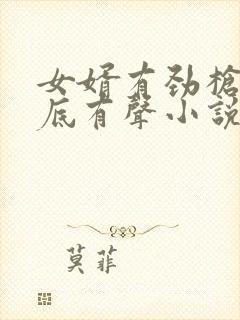 女婿有劲槍
底有聲小説
莫菲